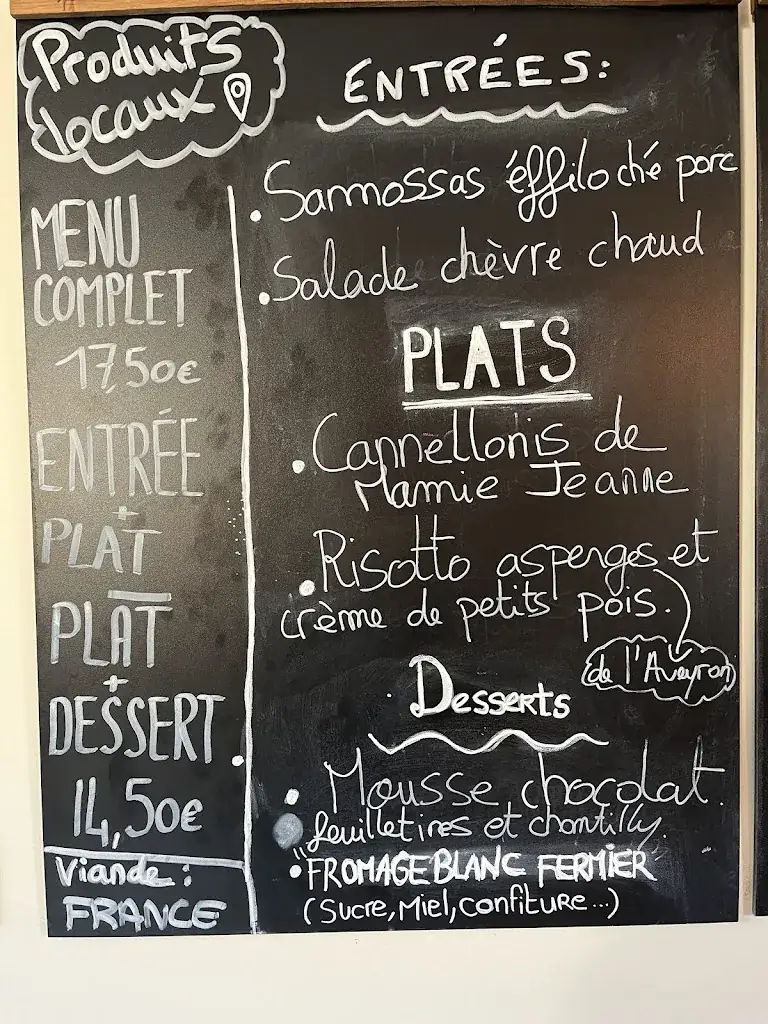 Produits
locaux
MENU
COMPLET
17,50€
ENTRÉE
+
PLAT
PLAT
+
DESSERT
14,50€
Viande :
FRANCE
ENTRÉES:
• Sammossas éffiloché porc
• Salade chèvre chaud
PLATS
• Cannellonis de
Mamie Jeanne
• Risotto asperges et
crème de petits pois.
de l'Aveyron
Desserts
• Mousse chocolat.
feuilletines et chantilly.
• "FROMAGE BLANC FERMIER
(Sucre, Miel, Confiture...)